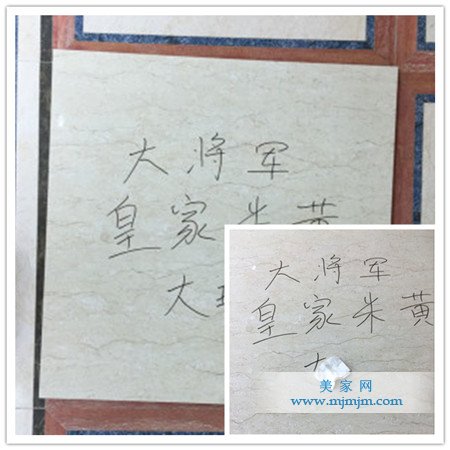 大将军
皇家朱黄
大
大将军
皇家朱黄
美家网
www.mjmjm.com